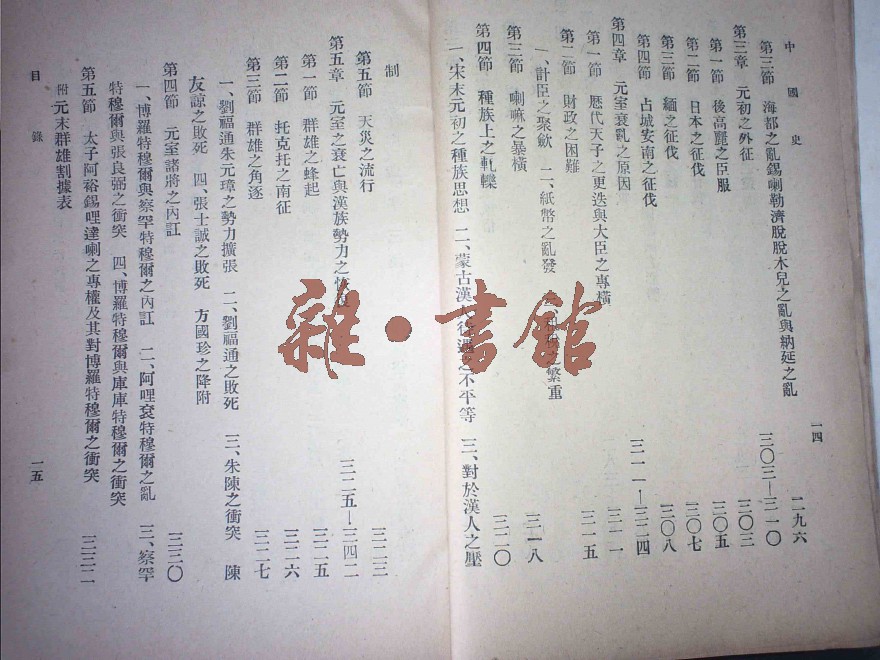 中國史
一四
第三節 海都之亂錫喇勒濟脫脫木兒之亂與納延之亂 二九六
第三章 元初之外征 三〇三—三一〇
第一節 後高麗之臣服 三〇三
第二節 日本之征伐 三〇五
第三節 緬之征伐 三〇七
第四節 占城安南之征伐 三〇八
第四章 元室衰亂之原因 三一一—三二四
第一節 歷代天子之更迭與大臣之專橫 三一一
第二節 財政之困難 三一五
一、計臣之聚歛 二、紙幣之亂發 之繁重 三一八
第三節 喇嘛之暴橫
第四節 種族上之軋轢 三二〇
一、宋末元初之種族思想 二、蒙古漢 之不平等 三、對於漢人之壓
制
第五節 天災之流行 三二三
第五章 元室之衰亡與漢族勢力之恢復 三二五—三四二
第一節 群雄之蜂起 三二五
第二節 托克托之南征 三二六
第三節 群雄之角逐 三二七
一、劉福通朱元璋之勢力擴張 二、劉福通之敗死 三、朱陳之衝突 陳
友諒之敗死 四、張士誠之敗死 方國珍之降附
第四節 元室諸將之內訌 三三〇
一、博羅特穆爾與察罕特穆爾之內訌 二、阿哩袞特穆爾之亂 三、察罕
特穆爾與張良弼之衝突 四、博羅特穆爾與庫庫特穆爾之衝突
第五節 太子阿裕錫哩達喇之專權及其對博羅特穆爾之衝突 三三二
附元末群雄割據表
目錄
一五
雜·書館